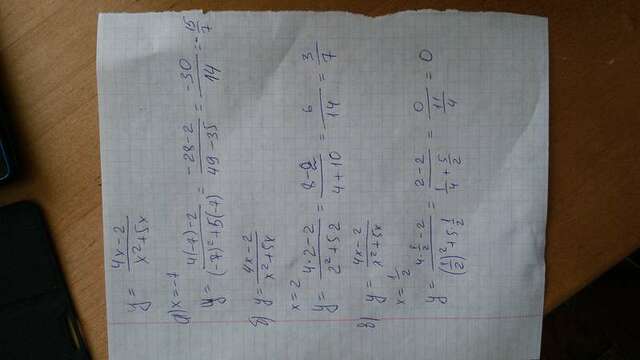 y = (4x-2)/(x²+5x)
а) x=-7
y = (4(-7)-2)/((-7)²+5(-7)) = (-28-2)/(49-35) = -30/14 = -15/7
б) y = (4x-2)/(x²+5x)
x=2
y = (4·2-2)/(2²+5·2) = (8-2)/(4+10) = 6/14 = 3/7
в) y = (4x-2)/(x²+5x)
x = 1/2
y = (4·1/2-2)/((1/2)²+5·1/2) = (2-2)/(1/4+5/2) = 0/(11/4) = 0